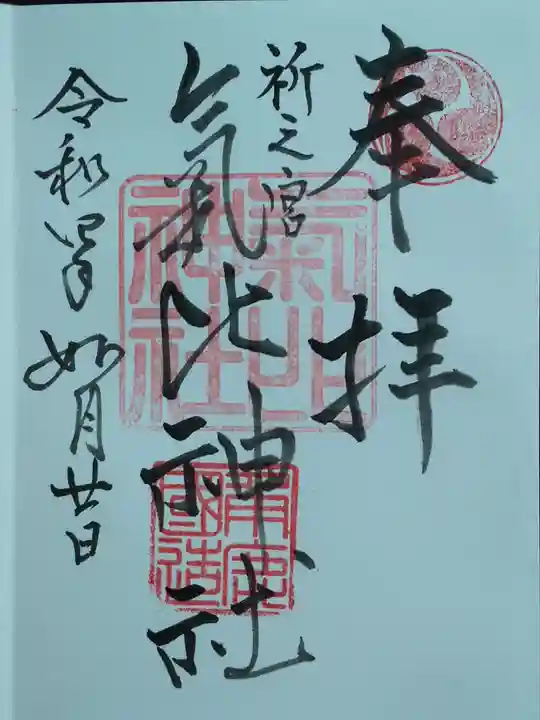 奉拝
祈之宮
氣比神社
令和四年如月廿日
氣比神社